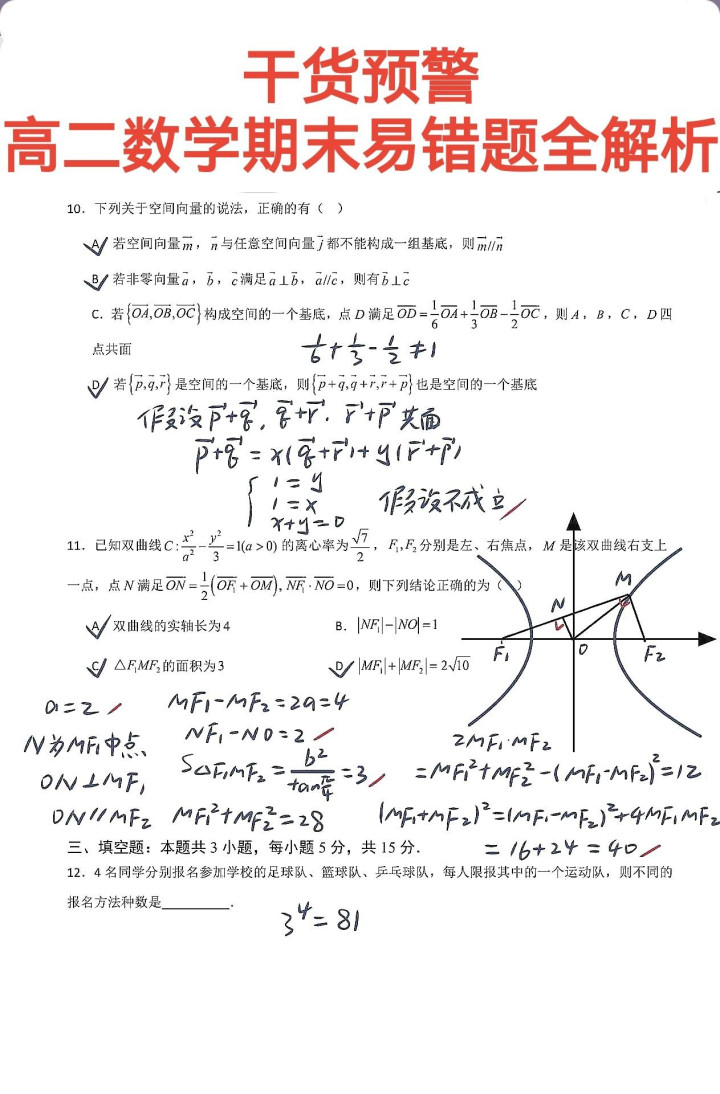 干货预警
高二数学期末易错题全解析
10. 下列关于空间向量的说法，正确的有（ ）
A. 若空间向量 $\vec{m}$，$\vec{n}$ 与任意空间向量 $\vec{j}$ 都不能构成一组基底，则 $\vec{m}//\vec{n}$
B. 若非零向量 $\vec{a}$，$\vec{b}$，$\vec{c}$ 满足 $\vec{a}\perp\vec{b}$，$\vec{a}//\vec{c}$，则有 $\vec{b}\perp\vec{c}$
C. 若 $\{\overrightarrow{OA},\overrightarrow{OB},\overrightarrow{OC}\}$ 构成空间的一个基底，点 D 满足 $\overrightarrow{OD}=\frac{1}{6}\overrightarrow{OA}+\frac{1}{3}\overrightarrow{OB}-\frac{1}{2}\overrightarrow{OC}$，则 A，B，C，D 四
点共面
$\frac{1}{6}+\frac{1}{3}-\frac{1}{2}\neq 1$
D. 若 $\{\vec{p},\vec{q},\vec{r}\}$ 是空间的一个基底，则 $\{\vec{p}+\vec{q},\vec{q}+\vec{r},\vec{r}+\vec{p}\}$ 也是空间的一个基底
假设 $\vec{p}+\vec{q}$，$\vec{q}+\vec{r}$，$\vec{r}+\vec{p}$ 共面
$\vec{p}+\vec{q}=x(\vec{q}+\vec{r})+y(\vec{r}+\vec{p})$
1=y
1=x 假设不成立
x+y=0
11. 已知双曲线 $C:\frac{x^2}{a^2}-\frac{y^2}{3}=1(a>0)$ 的离心率为 $\frac{\sqrt{7}}{2}$，$F_1,F_2$ 分别是左、右焦点，M 是该双曲线右支上
一点，点 N 满足 $\overrightarrow{ON}=\frac{1}{2}(\overrightarrow{OF_1}+\overrightarrow{OM}),\overrightarrow{NF_1}\cdot\overrightarrow{NO}=0$，则下列结论正确的为（ ）
A. 双曲线的实轴长为 4 B. $|NF_1|-|NO|=1$
C. $\triangle F_1MF_2$ 的面积为 3 D. $|MF_1|+|MF_2|=2\sqrt{10}$
M
N
F₁ O F₂
a=2 MF₁-MF₂=2a=4
N为MF₁中点 NF₁-NO=2 2MF₁·MF₂
ON⊥MF₁ $S_{\triangle F_1MF_2}=\frac{b^2}{\tan\frac{\pi}{4}}=3$ =MF₁²+MF₂²-(MF₁-MF₂)²=12
ON//MF₂ MF₁²+MF₂²=28 (MF₁+MF₂)²=(MF₁-MF₂)²+4MF₁MF₂
=16+24=40
三、填空题：本题共 3 小题，每小题 5 分，共 15 分．
12. 4 名同学分别报名参加学校的足球队、篮球队、乒乓球队，每人限报其中的一个运动队，则不同的
报名方法种数是__________．
3⁴=81